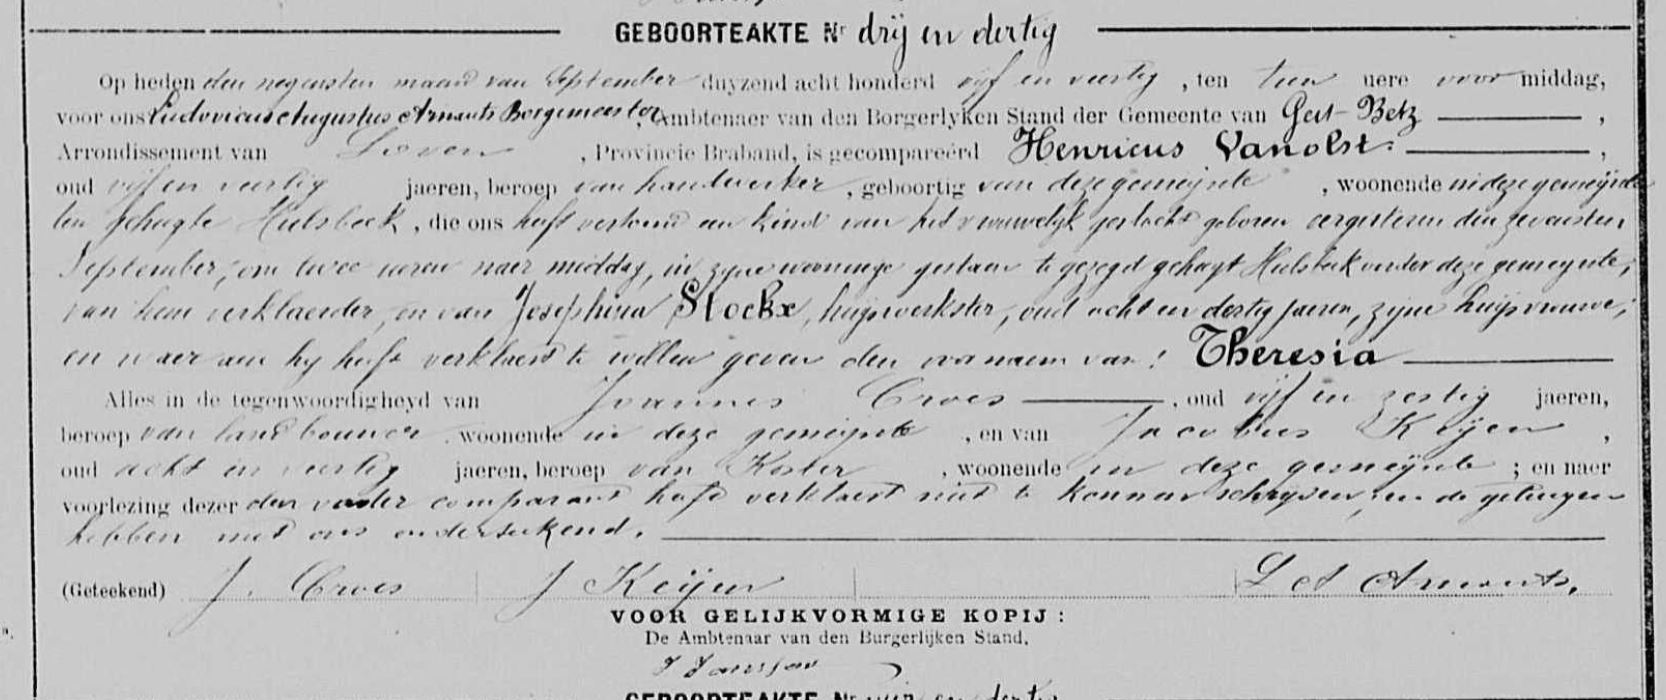 GEBOORTEAKTE Nr drij en dertig
Op heden den negensten maand van September duyzend acht honderd vijf en veertig , ten tien uere voor middag,
voor ons Ludovicus Augustus Armants Borgemeester, Ambtenaer van den Borgerlyken Stand der Gemeente van Geet-Betz ,
Arrondissement van Loven , Provincie Braband, is gecompareérd Henricus Vanolst. ,
oud vijf en veertig jaeren, beroep van handwerker , geboortig van deze gemeijnte , woonende in deze gemeijnte
ten gehugte Hulsbeek , die ons heeft vertoond een kind van het vrouwelijk geslacht geboren eergisteren den zevensten
September, om twee uren naer middag, in zijne wooninge gestaen te gezegd gehugt Hulsbeek onder deze gemeijnte,
van hem verklaerder, en van Josephina Stockx, huijswerkster, oud acht en dertig jaeren, zijne huijsvrouwe,
en waer aen hij heeft verklaert te willen geven den voornaem van: Theresia
Alles in de tegenwoordigheyd van Joannes Croes , oud vijf en zestig jaeren,
beroep van landbouwer woonende in deze gemeijnte , en van Jacobus Keijen ,
oud acht en veertig jaeren, beroep van Koster , woonende in deze gemeijnte ; en naer
voorlezing dezer den vader comparant heeft verklaert niet te konnen schrijven, en de getuigen
hebben met ons onderteekend.
(Geteekend) J. Croes J Keijen L A Armants.
VOOR GELIJKVORMIGE KOPIJ :
De Ambtenaar van den Burgerlijken Stand,
GEBOORTEAKTE Nr vier en dertig